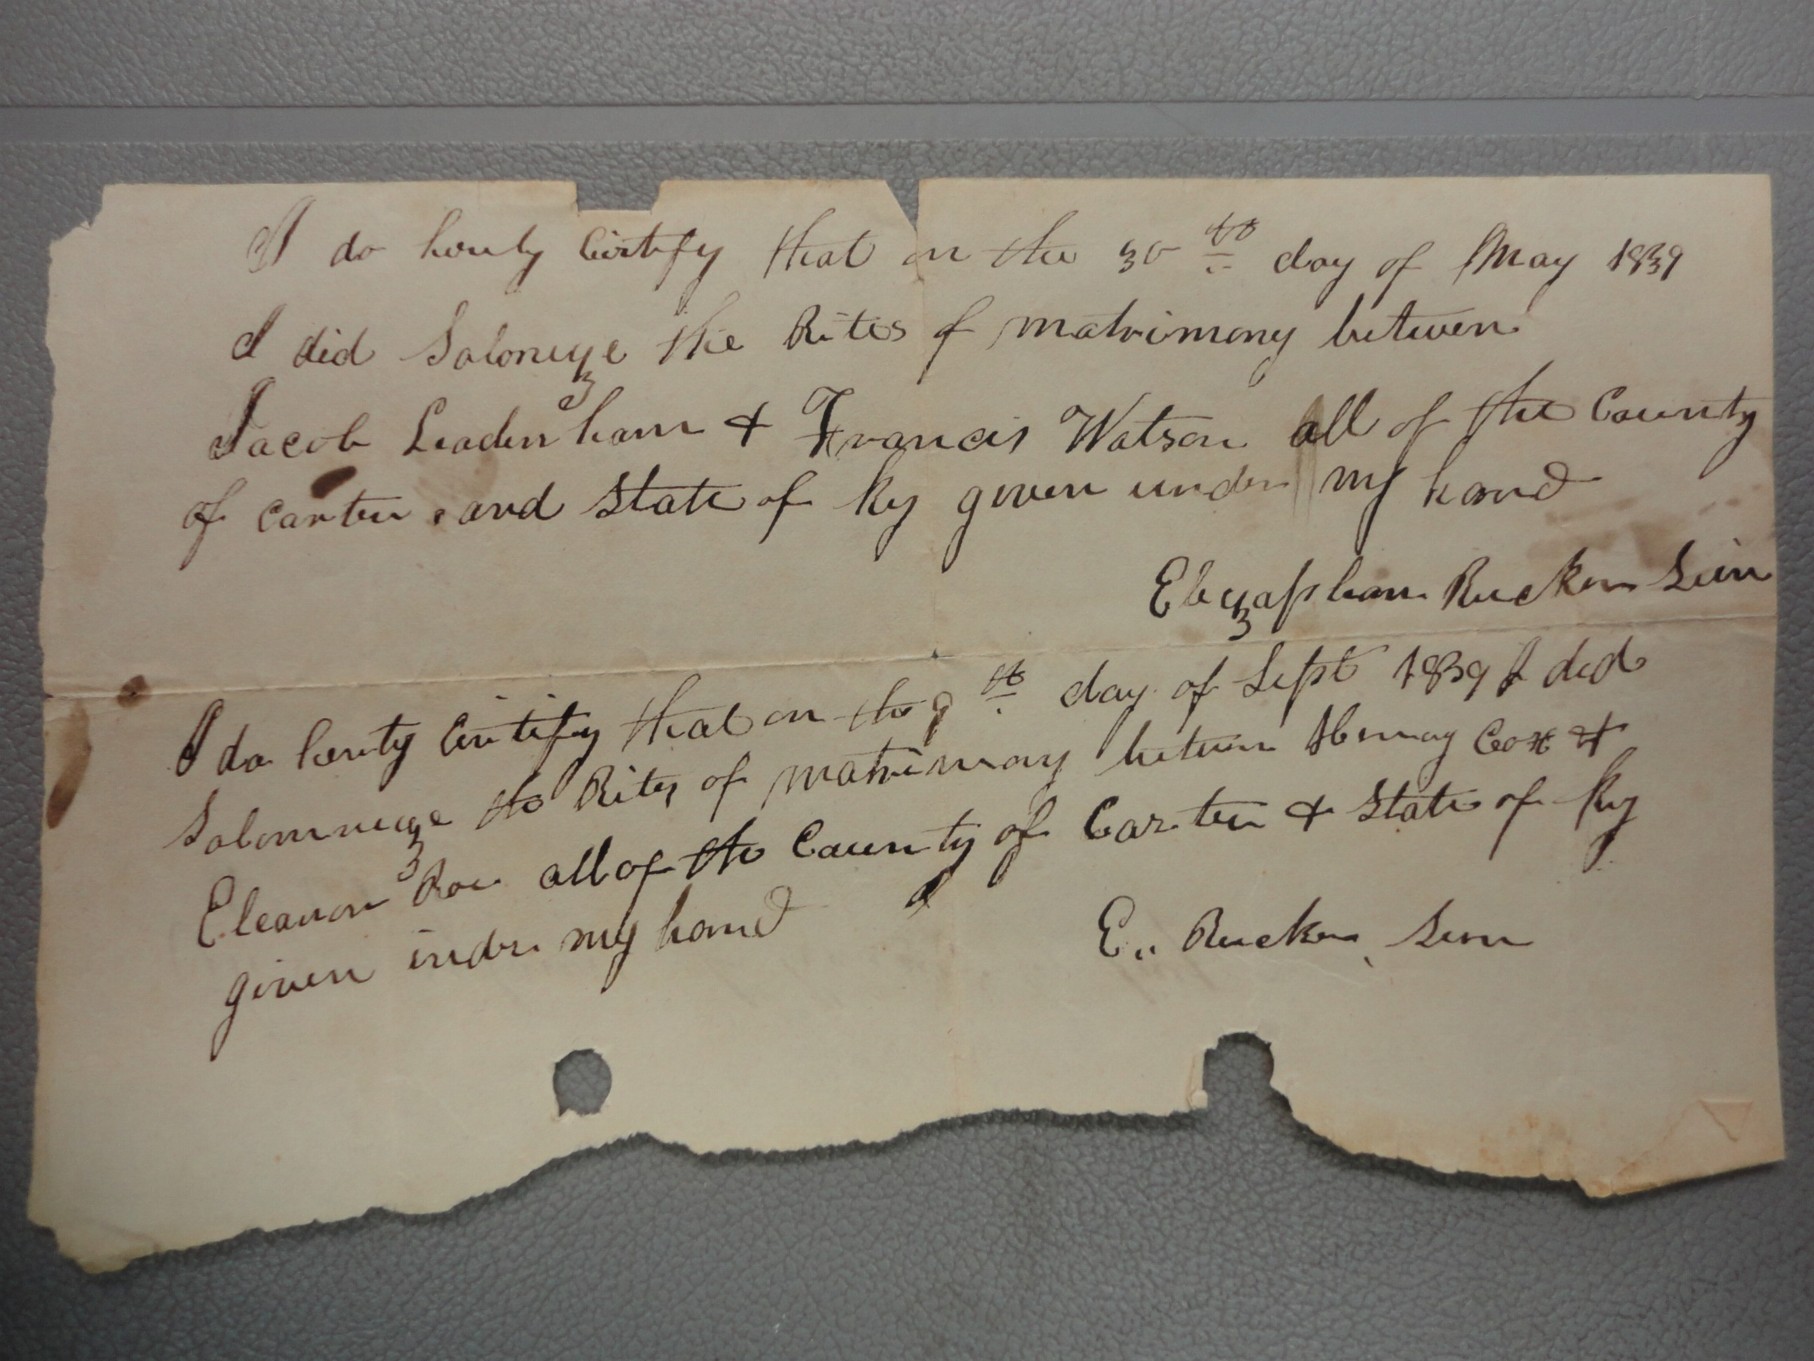 I do herely Certify that on the 30th day of May 1839
I did Saloneyze the Rites of matrimony between
Jacob Leadenham & Francis Watson all of the County
of Carter and State of Ky given under my hand
Elyzapham Rucker Sen
I do herety Certify that on the 9th day of Sept 1839 I did
Salomneyze the Rites of matrimony between Henray Cox &
Eleanor Roe all of the County of Carter & State of Ky
given under my hand
E. Rucker Senr